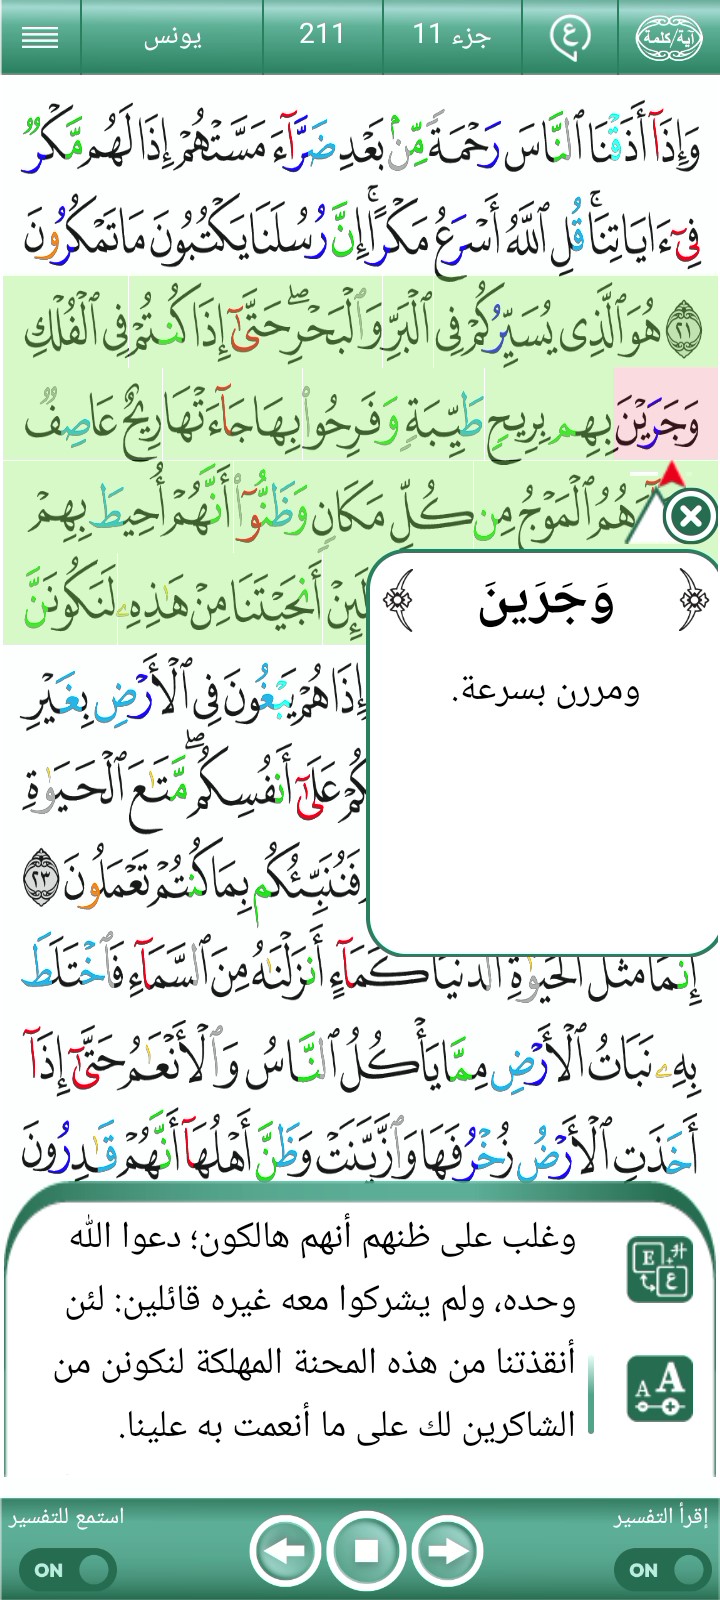 آية/كلمة
ع
جزء 11
211
يونس
وَإِذَآ أَذَقْنَا ٱلنَّاسَ رَحْمَةً مِّنۢ بَعْدِ ضَرَّآءَ مَسَّتْهُمْ إِذَا لَهُم مَّكْرٌ
فِىٓ ءَايَاتِنَا ۚ قُلِ ٱللَّهُ أَسْرَعُ مَكْرًا ۚ إِنَّ رُسُلَنَا يَكْتُبُونَ مَا تَمْكُرُونَ
٢١ هُوَ ٱلَّذِى يُسَيِّرُكُمْ فِى ٱلْبَرِّ وَٱلْبَحْرِ ۖ حَتَّىٰٓ إِذَا كُنتُمْ فِى ٱلْفُلْكِ
وَجَرَيْنَ بِهِم بِرِيحٍ طَيِّبَةٍ وَفَرِحُوا۟ بِهَا جَآءَتْهَا رِيحٌ عَاصِفٌ
هُمُ ٱلْمَوْجُ مِن كُلِّ مَكَانٍ وَظَنُّوٓا۟ أَنَّهُمْ أُحِيطَ بِهِمْ
لَئِنْ أَنجَيْتَنَا مِنْ هَٰذِهِۦ لَنَكُونَنَّ
إِذَا هُمْ يَبْغُونَ فِى ٱلْأَرْضِ بِغَيْرِ
كُمْ عَلَىٰٓ أَنفُسِكُم ۖ مَّتَٰعَ ٱلْحَيَوٰةِ
فَنُنَبِّئُكُم بِمَا كُنتُمْ تَعْمَلُونَ ٢٣
إِنَّمَا مَثَلُ ٱلْحَيَوٰةِ ٱلدُّنْيَا كَمَآءٍ أَنزَلْنَٰهُ مِنَ ٱلسَّمَآءِ فَٱخْتَلَطَ
بِهِۦ نَبَاتُ ٱلْأَرْضِ مِمَّا يَأْكُلُ ٱلنَّاسُ وَٱلْأَنْعَٰمُ حَتَّىٰٓ إِذَآ
أَخَذَتِ ٱلْأَرْضُ زُخْرُفَهَا وَٱزَّيَّنَتْ وَظَنَّ أَهْلُهَآ أَنَّهُمْ قَٰدِرُونَ
وَجَرَينَ
ومررن بسرعة.
وغلب على ظنهم أنهم هالكون؛ دعوا الله
وحده، ولم يشركوا معه غيره قائلين: لئن
أنقذتنا من هذه المحنة المهلكة لنكونن من
الشاكرين لك على ما أنعمت به علينا.
E ع
A A
إقرأ التفسير
استمع للتفسير
ON
ON